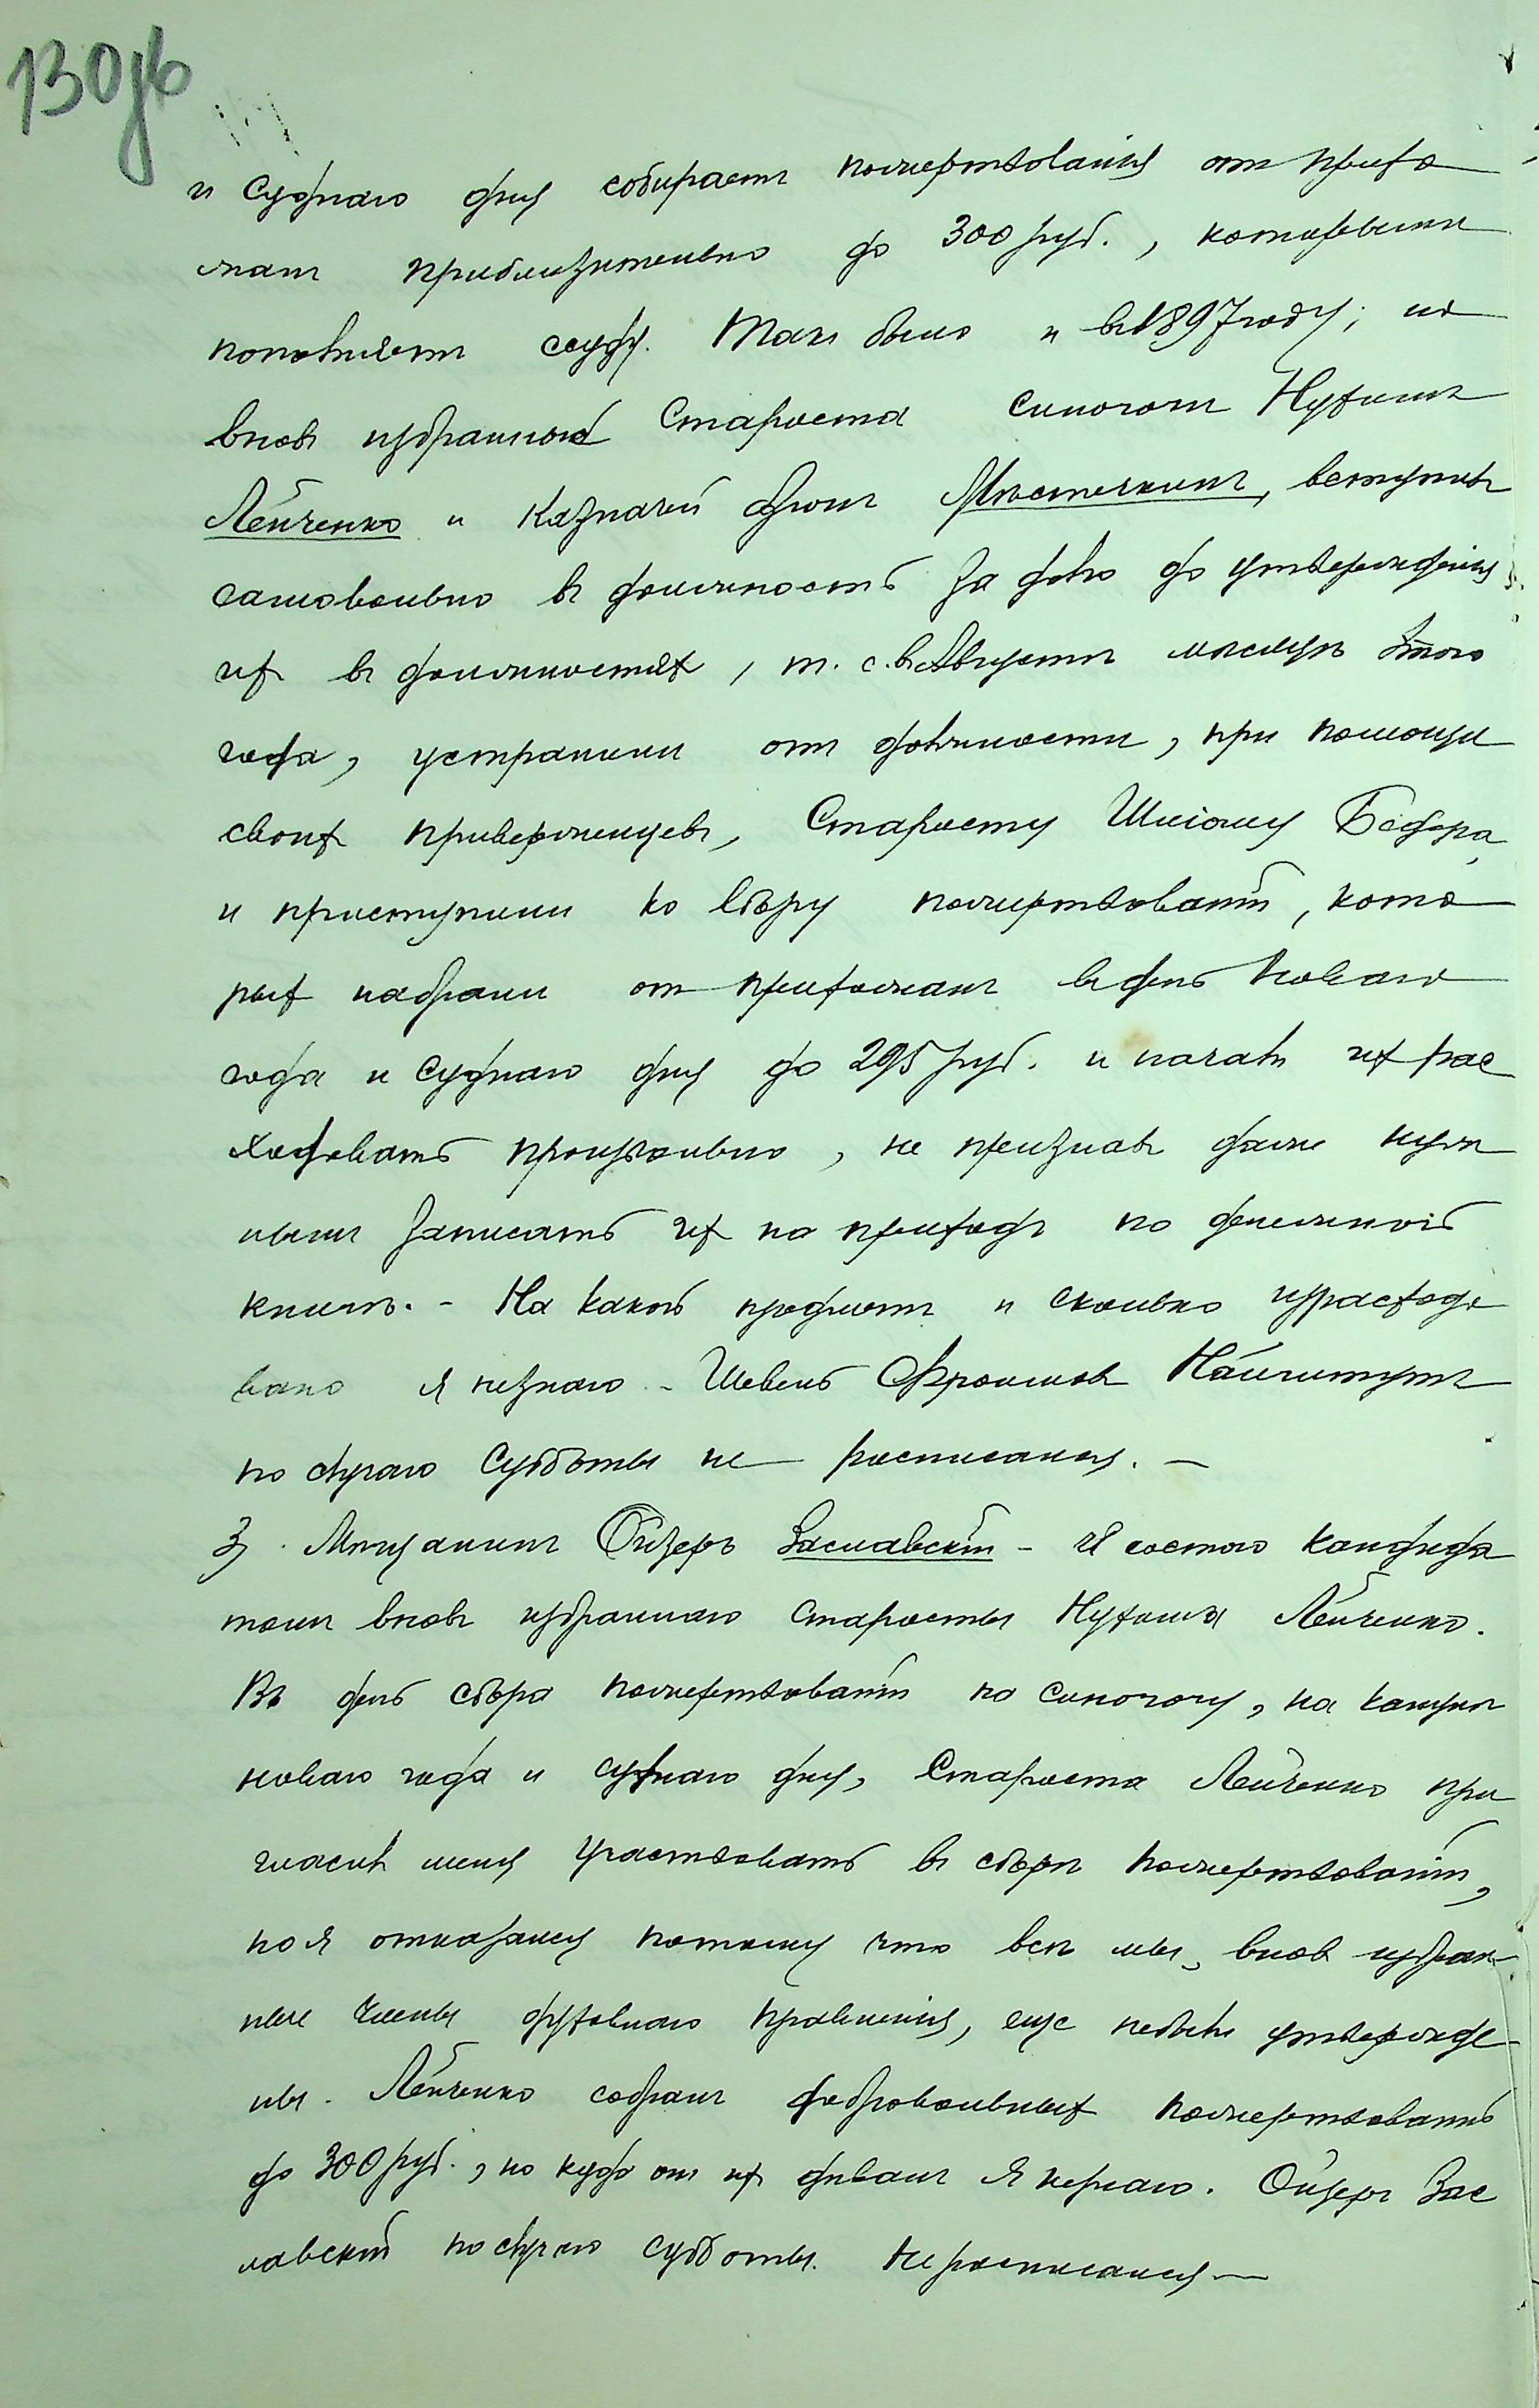 130 об
и Суднаго дня собираетъ пожертвованія отъ прихо
жанъ приблизительно до 300 руб., которыми
пополняетъ ссуду. Такъ было и въ 1897 году; но
вновь избранный Староста синагоги Нухимъ
Лейченко и Казначей Мѣстечкинъ, вступивъ
самовольно въ должность за долго до утвержденія
ихъ въ должностяхъ, т. е. въ Августѣ мѣсяцѣ этого
года, устранили отъ должности, при помощи
своихъ приверженцевъ, Старосту Шлiому Бедера
и приступили ко сбору пожертвованій, кото
рыхъ набрали отъ прихожанъ въ день Новаго
года и Суднаго дня до 295 руб. и начали ихъ рас
ходовать произвольно, не признавъ даже нуж
нымъ записать ихъ на приходъ по денежной
книгѣ. - На какой предметъ и сколько израсходо
вано я не знаю - Шевель Фроимовъ
по случаю Субботы не росписался. -
3) Мѣщанинъ Ойзеръ Заславскій - Я состою Кандида
томъ вновь избраннаго старосты Нухима Лейченко.
Въ день сбора пожертвованій на синагогу, на канунѣ
новаго года и суднаго дня, Староста Лейченко при
гласилъ меня участвовать въ сборѣ пожертвованій,
но я отказался потому что всѣ мы, вновь избран
ные члены духовнаго правленія, еще не были утвержде
ны. Лейченко собралъ добровольныхъ пожертвованій
до 300 руб., но куда онъ ихъ дѣвалъ я не знаю. Ойзеръ Зас
лавскій по случаю субботы не росписался -